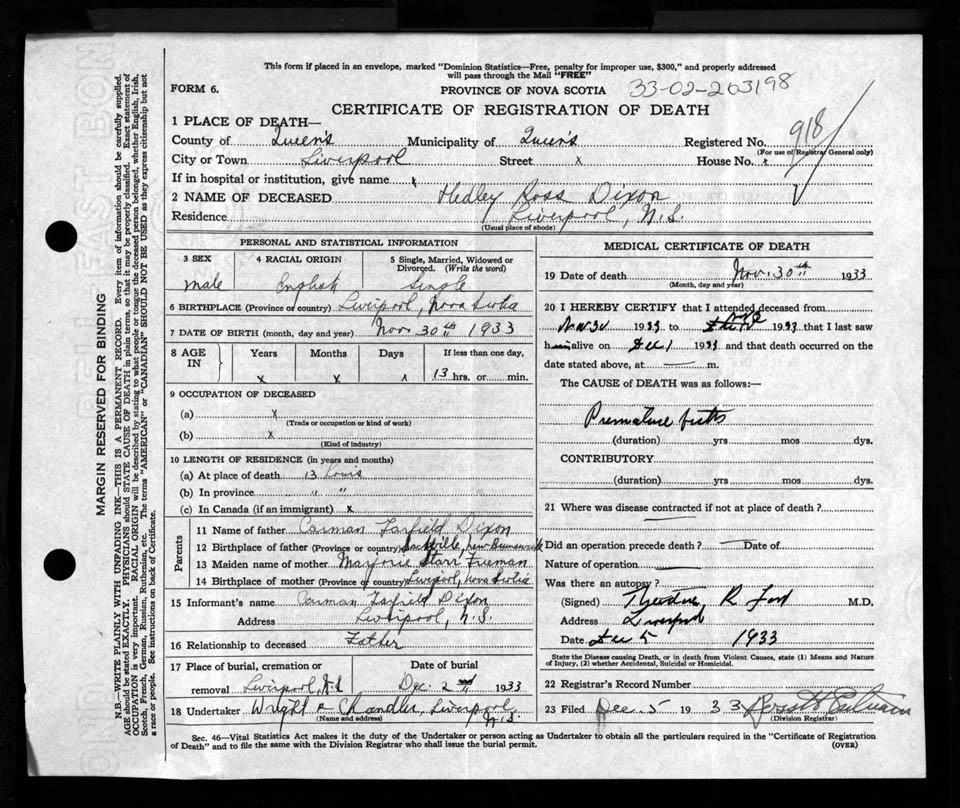 This form if placed in an envelope, marked "Dominion Statistics—Free, penalty for improper use, $300," and properly addressed
will pass through the Mail "FREE"
FORM 6.
PROVINCE OF NOVA SCOTIA
33-02-203198
CERTIFICATE OF REGISTRATION OF DEATH
1 PLACE OF DEATH—
County of Queen's Municipality of Queen's Registered No. 918
(For use of Registrar General only)
City or Town Liverpool Street x House No. x
If in hospital or institution, give name x
2 NAME OF DECEASED Hedley Ross Dixon
Residence Liverpool, N.S.
(Usual place of abode)
PERSONAL AND STATISTICAL INFORMATION
3 SEX 4 RACIAL ORIGIN 5 Single, Married, Widowed or
Divorced. (Write the word)
male English Single
6 BIRTHPLACE (Province or country) Liverpool, Nova Scotia
7 DATE OF BIRTH (month, day and year) Nov. 30th 1933
8 AGE IN Years Months Days If less than one day,
x x x 13 hrs. or min.
9 OCCUPATION OF DECEASED
(a) x
(Trade or occupation or kind of work)
(b) x
(Kind of industry)
10 LENGTH OF RESIDENCE (in years and months)
(a) At place of death 13
(b) In province " "
(c) In Canada (if an immigrant) x
Parents
11 Name of father Carman Fairfield Dixon
12 Birthplace of father (Province or country) Sackville, New Brunswick
13 Maiden name of mother Marjorie Starr Freeman
14 Birthplace of mother (Province or country) Liverpool, Nova Scotia
15 Informant's name Carman Fairfield Dixon
Address Liverpool, N.S.
16 Relationship to deceased Father
17 Place of burial, cremation or Date of burial
removal Liverpool, N.S Dec. 2nd 1933
18 Undertaker Wright & Chandler, Liverpool
N.S.
(Name and address)
MEDICAL CERTIFICATE OF DEATH
19 Date of death Nov. 30th 1933
(Month, day and year)
20 I HEREBY CERTIFY that I attended deceased from
Nov 30 1933 to 1933 that I last saw
him alive on Dec 1 1933 and that death occurred on the
date stated above, at — m.
The CAUSE of DEATH was as follows:—
Premature birth
(duration) yrs mos dys.
CONTRIBUTORY
(duration) yrs mos dys.
21 Where was disease contracted if not at place of death?
Did an operation precede death? — Date of
Nature of operation —
Was there an autopsy? —
(Signed) Theodore R Ford M.D.
Address Liverpool
Date Dec 5 1933
State the Disease causing Death, or in death from Violent Causes, state (1) Means and Nature
of Injury, (2) whether Accidental, Suicidal or Homicidal.
22 Registrar's Record Number
23 Filed Dec. 5 1933
(Division Registrar)
Sec. 46—Vital Statistics Act makes it the duty of the Undertaker or person acting as Undertaker to obtain all the particulars required in the "Certificate of Registration
of Death" and to file the same with the Division Registrar who shall issue the burial permit.
(OVER)
MARGIN RESERVED FOR BINDING
N.B.—WRITE PLAINLY WITH UNFADING INK—THIS IS A PERMANENT RECORD. Every item of information should be carefully supplied.
AGE should be stated EXACTLY. PHYSICIANS should STATE CAUSE OF DEATH in plain terms, so that it may be properly classified. Exact statement of
OCCUPATION is very important. RACIAL ORIGIN will be described by stating to what people or tongue the deceased person belonged, whether English, Irish,
Scotch, French, German, Russian, Ruthenian, etc. The terms "AMERICAN" or "CANADIAN" SHOULD NOT BE USED as they express citizenship but not
a race or people. See instructions on back of Certificate.